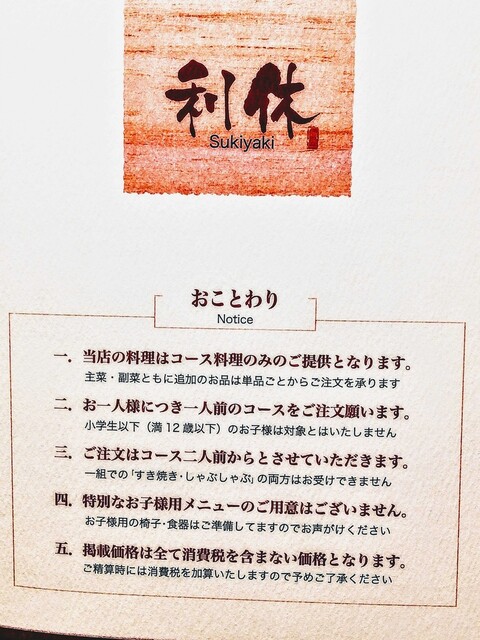 利休
Sukiyaki
おことわり
Notice
一．当店の料理はコース料理のみのご提供となります。
主菜・副菜ともに追加のお品は単品ごとからご注文を承ります
二．お一人様につき一人前のコースをご注文願います。
小学生以下（満12歳以下）のお子様は対象とはいたしません
三．ご注文はコース二人前からとさせていただきます。
一組での「すき焼き・しゃぶしゃぶ」の両方はお受けできません
四．特別なお子様用メニューのご用意はございません。
お子様用の椅子・食器はご準備してますのでお声がけください
五．掲載価格は全て消費税を含まない価格となります。
ご精算時には消費税を加算いたしますので予めご了承ください